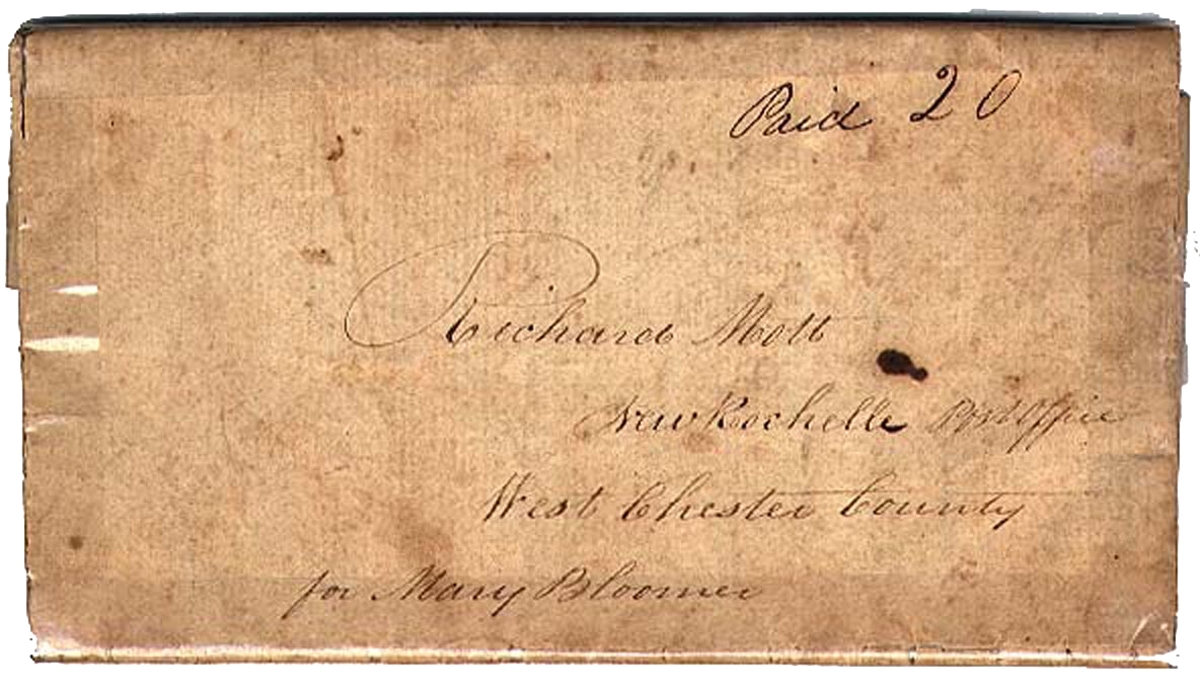 Paid 20
Richard Mott
New Rochelle Post Office
West Chester County
for Mary Bloomer